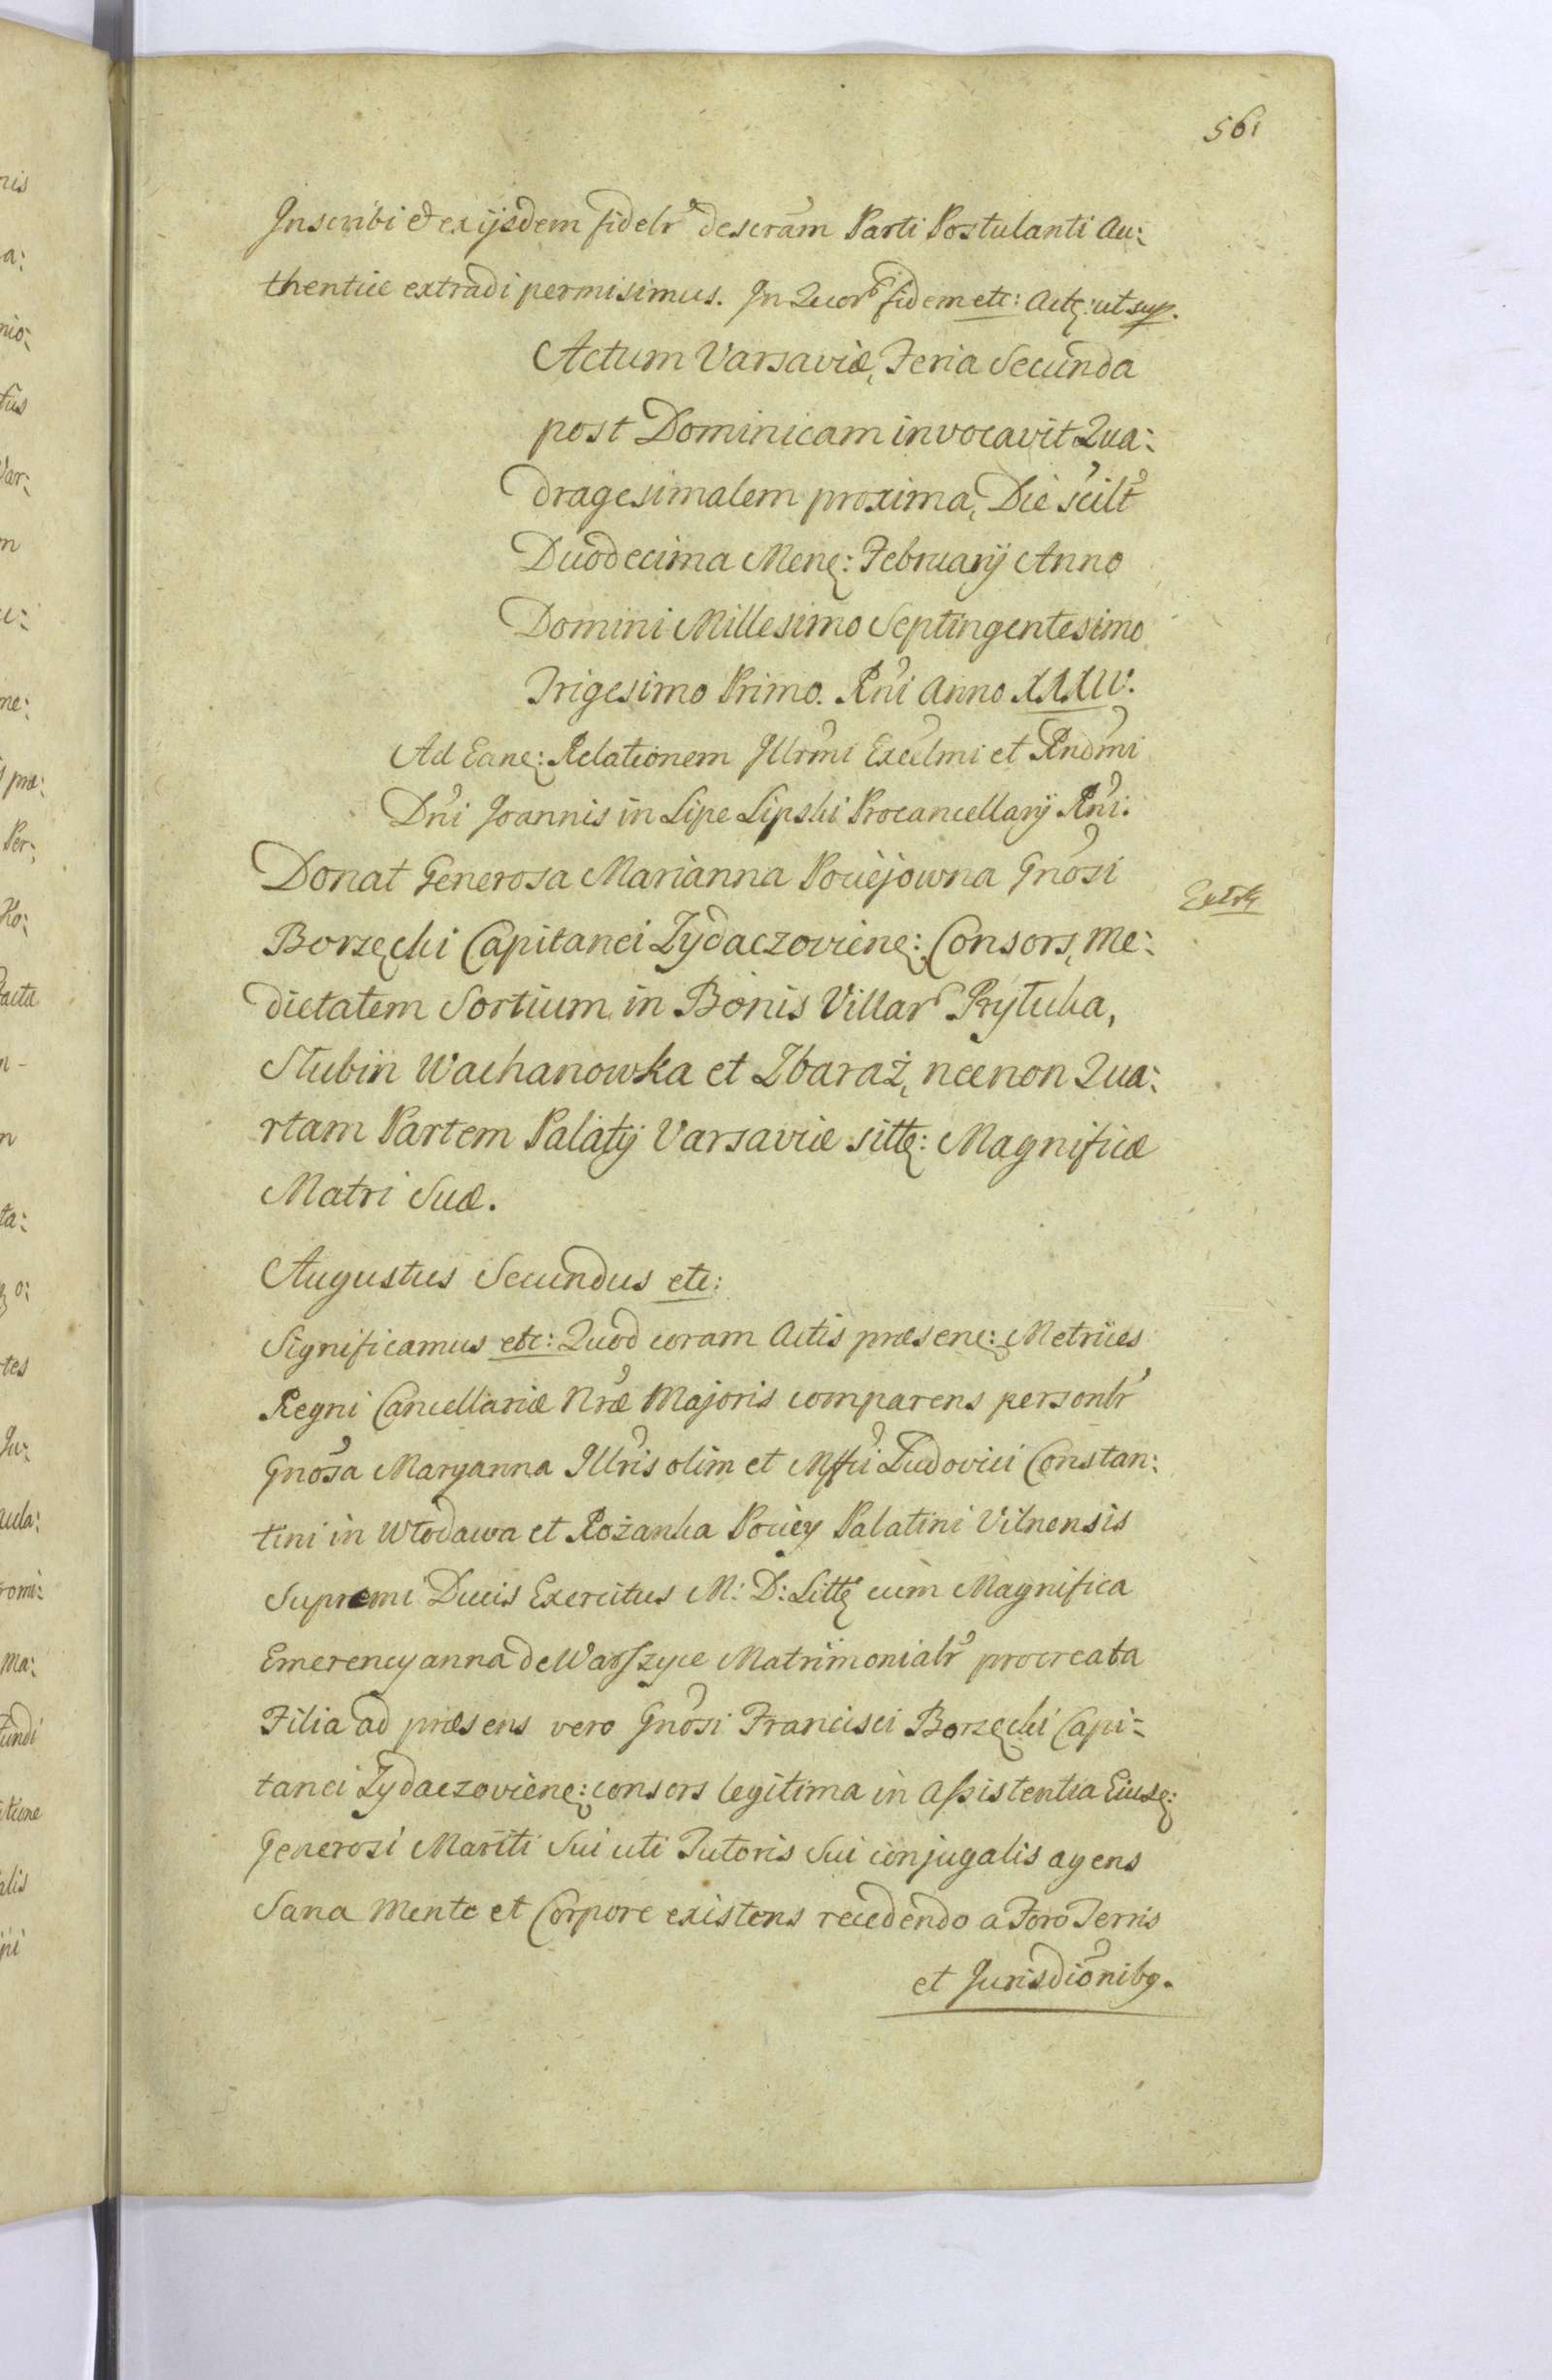 561
Inscribi et ex ijsdem fidelr descram Parti Postulanti Au:
thentice extradi permisimus. In Quor fidem etc: Act: ut sup.
Actum Varsaviæ, Feria Secunda
post Dominicam invocavit Qua:
dragesimalem proxima, Die scilt
Duodecima Mens: February Anno
Domini Millesimo Septingentesimo
Trigesimo Primo. Rni Anno XXXIV.
Ad Eand: Relationem Illrmi Excelmi et Rndmi
Dni Joannis in Lipe Lipski Procancellary Rni.
Donat Generosa Marianna Pociejowna Gnosi
Borzęcki Capitanei Zydaczoviens: Consors, me:
dietatem Sortium in Bonis Villar Rytuka,
Stubin Wachanowka et Zbaraż, necnon Qua:
rtam Partem Palaty Varsaviæ sitt: Magnificæ
Matri Suæ.
Augustus Secundus etc:
Significamus etc: Quod coram Actis præsent: Metrices
Regni Cancellariæ Nræ Majoris comparens personlr
Gnosa Maryanna Illris olim et Mffci Ludovici Constan:
tini in Włodawa et Rożanka Pociey Palatini Vilnensis
Supremi Ducis Exercitus M: D: Litt cum Magnifica
Emerencyanna de Warszyce Matrimonialr procreata
Filia ad præsens vero Gnosi Francisci Borzęcki Capi=
tanei Zydaczoviens: consors legitima in Assistentia Eiusd:
Generosi Mariti Sui uti Tutoris Sui conjugalis agens
Sana Mente et Corpore existens recedendo a Foro Terris
et Jurisdionibq.